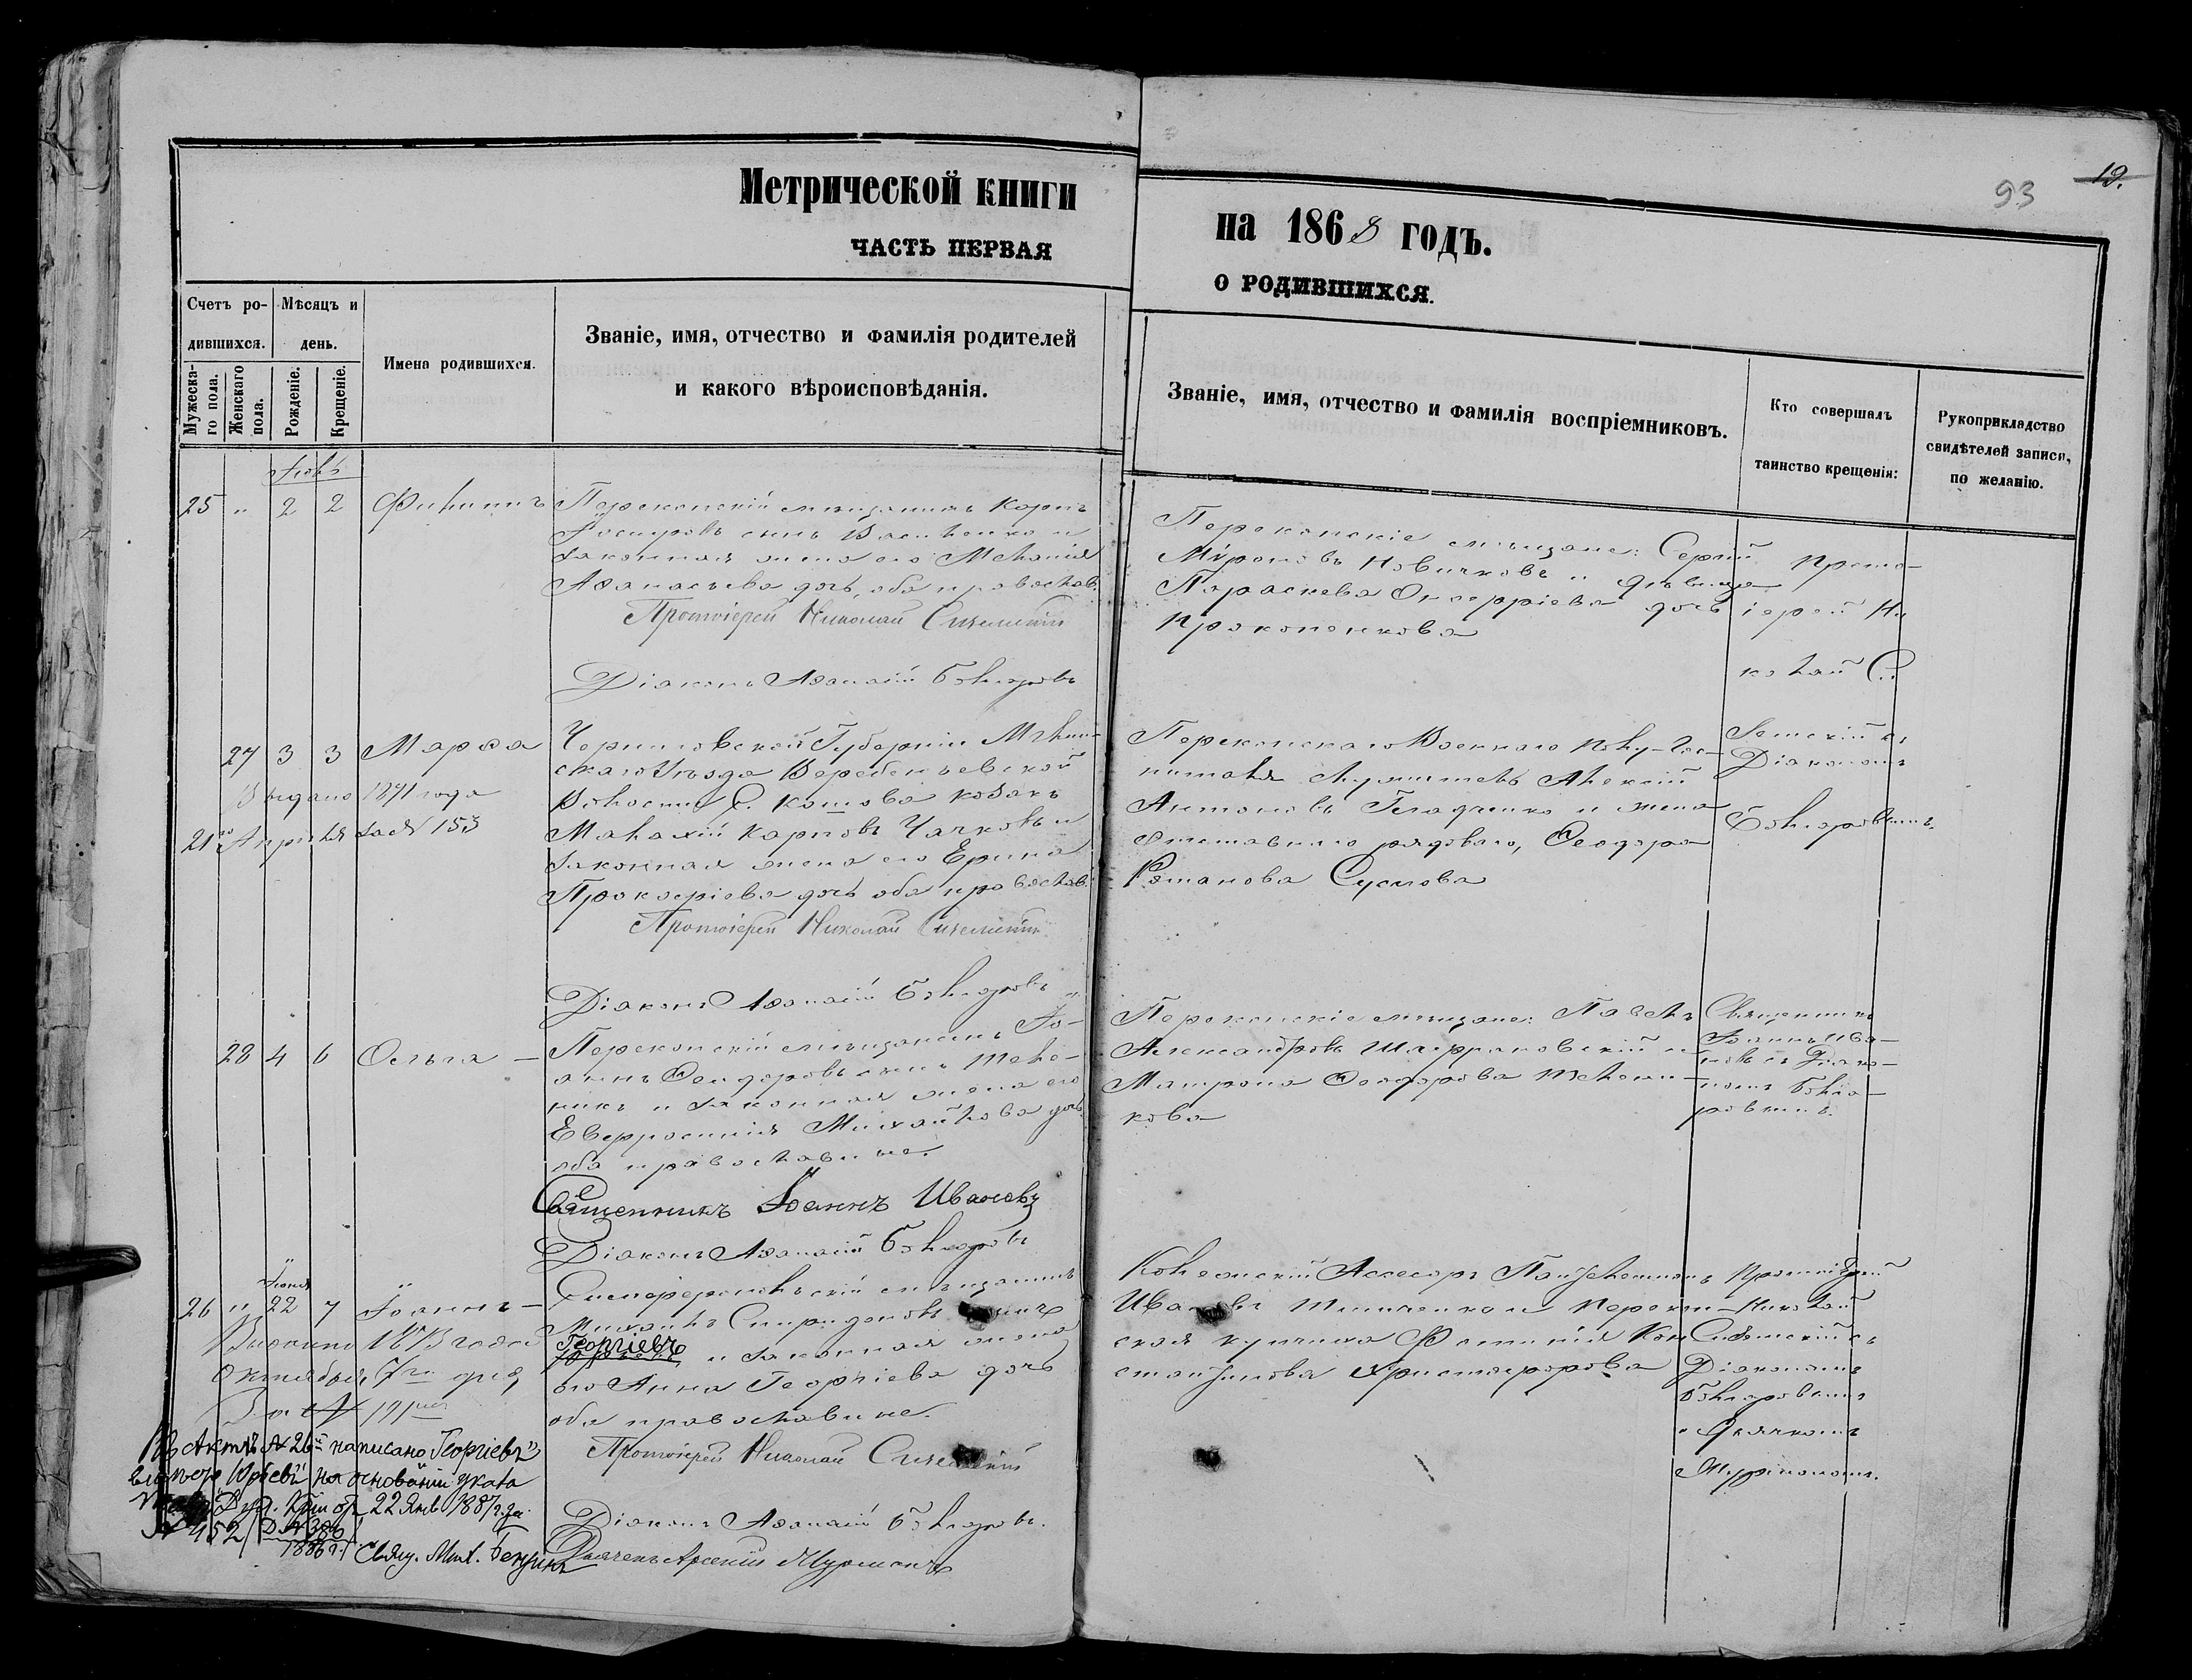 19.
93
Метрической книги
на 1868 годъ.
ЧАСТЬ ПЕРВАЯ
О РОДИВШИХСЯ.
Счетъ ро-
дившихся.
Мужеска-
го пола.
Женскаго
пола.
Мѣсяцъ и
день.
Рожденіе.
Крещеніе.
Имена родившихся.
Званіе, имя, отчество и фамилія родителей
и какого вѣроисповѣданія.
Званіе, имя, отчество и фамилія воспріемниковъ.
Кто совершалъ
таинство крещенія:
Рукоприкладство
свидѣтелей записи,
по желанію.
25 " 2 2 Филиппъ
Перекопскій мѣщанинъ Карпъ
сынъ и
законная жена его Меланія
Аѳанасьева дочь, оба православ.
Протоіерей Николай
Діаконъ Аѳанасій
Перекопскіе мѣщане: Сергій
Мѵроновъ Новичковъ и дѣвица
Параскева Онуфріева дочь
Прокопенкова
Прото-
іерей Ни-
колай С.
27 3 3 Марѳа
Выдано 1891 года
21го Апрѣля за № 153
Черниговской Губерніи Мглин-
скаго Уѣзда
Волости С. Кошова козакъ
Малахій Карповъ Чачковъ и
законная жена его Ерина
Прокофіева дочь оба православ.
Протоіерей Николай
Діаконъ Аѳанасій
Перекопскаго Военнаго Полу-Гос-
питаля служитель Алексій
Антоновъ Гладченко и жена
отставнаго рядоваго, Ѳеодора
Романова Суслова
Діакономъ
28 4 6 Ольга —
Перекопскій мѣщанинъ Іо-
аннъ Ѳеодоровъ сынъ Теле-
никъ и законная жена его
Евфросинія Михайлова дочь
оба православные.
Священникъ Іоаннъ Ивановъ
Діаконъ Аѳанасій
Перекопскіе мѣщане: Павелъ
Александровъ Шафрановскій и
Матрона Ѳеодорова Телени-
кова
Священникъ
Іоаннъ Ива-
новъ съ Діако-
номъ
Іюня
26 " 22 7 Іоаннъ —
Выдано 1893 года
Октября 7го дня,
За № 191
Симферопольскій мѣщанинъ
Михаилъ Спиридоновъ сынъ
Георгіевъ
и законная жена
его Анна Георгіева дочь
оба православные.
Протоіерей Николай
Діаконъ Аѳанасій
Дьячекъ Арсеній Мурманъ
Коллежскій Ассесоръ Пантелеймонъ
Ивановъ Тимченко и Перекоп-
ская купчиха Фотинія Кон-
стантинова Христофорова
Протоіерей
Николай
Діакономъ
Въ Актѣ № 26й написано "Георгіевъ"
вмѣсто "Юрьевъ" на основаніи указа
22 Янв. 1887 г. за
№ 452
1886 г.
Свящ.